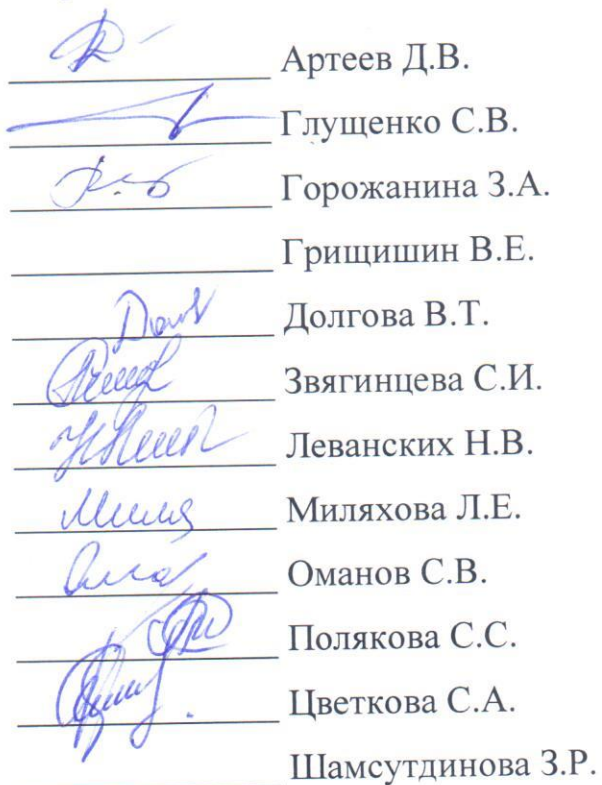 Артеев Д.В.
Глущенко С.В.
Горожанина З.А.
Грищишин В.Е.
Долгова В.Т.
Звягинцева С.И.
Леванских Н.В.
Миляхова Л.Е.
Оманов С.В.
Полякова С.С.
Цветкова С.А.
Шамсутдинова З.Р.